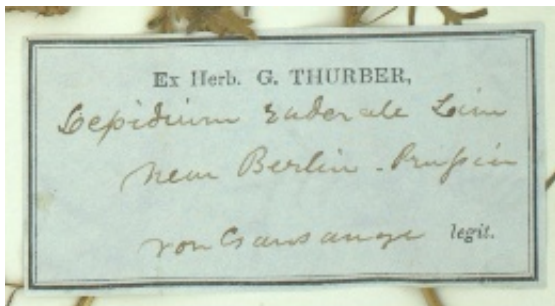 Ex Herb. G. THURBER,
Lepidium ruderale Linn
near Berlin - Prussia
legit.